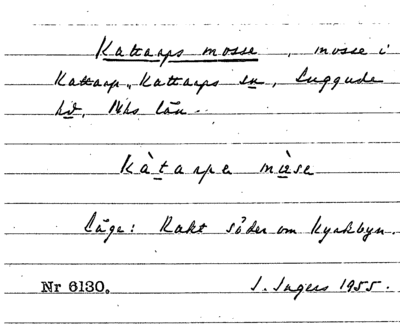 Kattarps mosse, mosse i
Kattarp, Kattarps sn, Luggude
hd, Mhs län.
Kàtarpa mùse
Läge: Rakt söder om Kyrkbyn.
Nr 6130. J. Ingers 1955.